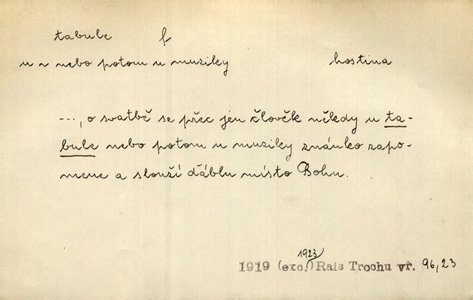 tabule f
u ~ nebo potom u muziky hostina
..., o svatbě se přec jen člověk někdy u ta-
bule nebo potom u muziky známko zapo-
mene a slouží ďáblu místo Bohu.
1923
1919 (exc.) Rais Trochu vř. 96,23